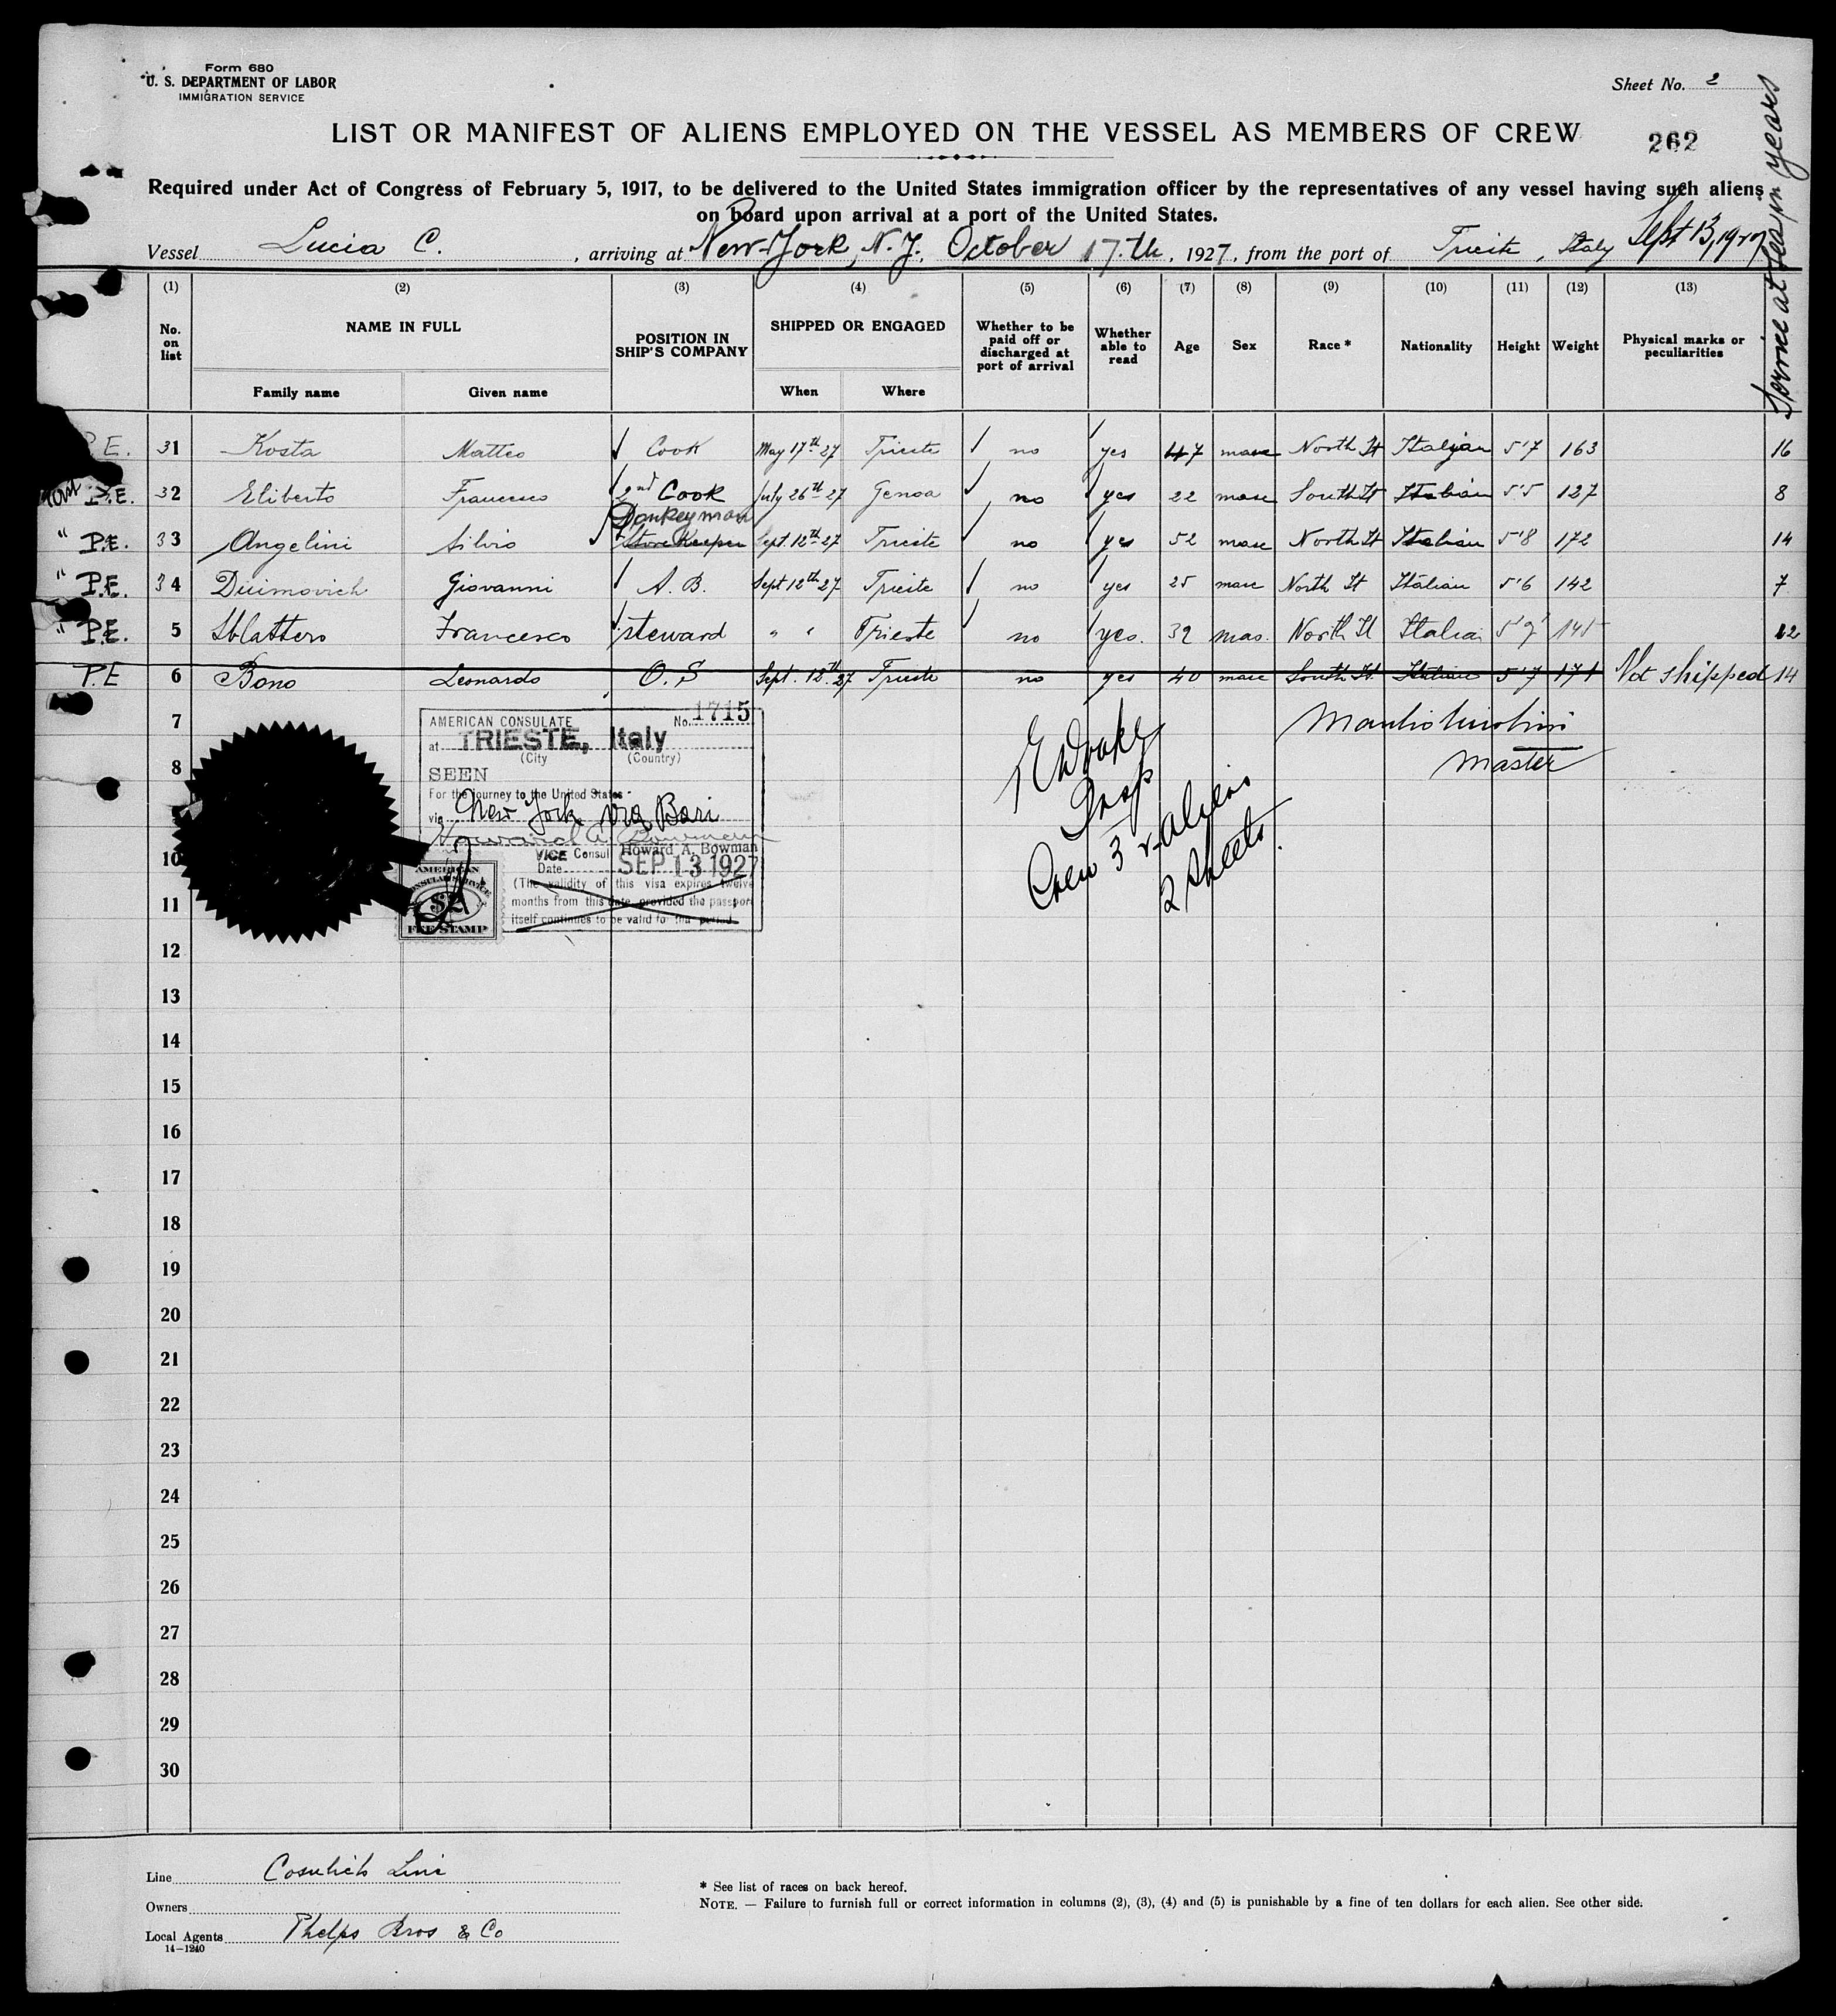 Form 680
U. S. DEPARTMENT OF LABOR
IMMIGRATION SERVICE
Sheet No. 2
LIST OR MANIFEST OF ALIENS EMPLOYED ON THE VESSEL AS MEMBERS OF CREW
262
Required under Act of Congress of February 5, 1917, to be delivered to the United States immigration officer by the representatives of any vessel having such aliens
on board upon arrival at a port of the United States.
Vessel Lucia C. , arriving at New-York, N.Y. October 17.th, 1927, from the port of Trieste, Italy Sept 13, 1927
(1) (2) (3) (4) (5) (6) (7) (8) (9) (10) (11) (12) (13) Service at Sea in years
No. on list NAME IN FULL Family name Given name POSITION IN SHIP'S COMPANY SHIPPED OR ENGAGED When Where Whether to be paid off or discharged at port of arrival Whether able to read Age Sex Race * Nationality Height Weight Physical marks or peculiarities
P.E. 31 Kosta Matteo Cook May 17th 27 Trieste no yes 47 masc North It Italian 5'7 163 16
P.E. 32 Eliberto Francesco 2nd Cook July 26th 27 Genoa no yes 22 masc South It Italian 5'5 127 8
Donkeyman
" P.E. 33 Angelini Silvio Store Keeper Sept. 12th 27 Trieste no yes 52 masc North It Italian 5'8 172 14
" P.E. 34 Duimovich Giovanni A. B. Sept 12th 27 Trieste no yes 25 masc North It Italian 5'6 142 7
" P.E. 5 Francesco steward " " Trieste no yes. 32 mas. North It Italia 12
P.E 6 Bono Leonardo O. S Sept. 12th 27 Trieste no yes 40 masc South It. Italian 5'7 171 Not shipped 14
7
8
Master
10
11
12
13
14
15
16
17
18
19
20
21
22
23
24
25
26
27
28
29
30
AMERICAN CONSULATE No. 1715
at TRIESTE, Italy
(City (Country)
SEEN
For the journey to the United States
via New York via Bari
Howard A. Bowman
VICE Consul Howard A. Bowman
Date SEP 13 1927
(The validity of this visa expires twelve
months from this date provided the passport
itself continues to be valid for that period.
AMERICAN
CONSULAR SERVICE
$2
FEE STAMP
E Drake
Insp
Crew 3 aliens
2 sheets.
Line Cosulich Line
Owners
Local Agents Phelps Bros & Co
14—1240
* See list of races on back hereof.
NOTE. — Failure to furnish full or correct information in columns (2), (3), (4) and (5) is punishable by a fine of ten dollars for each alien. See other side.